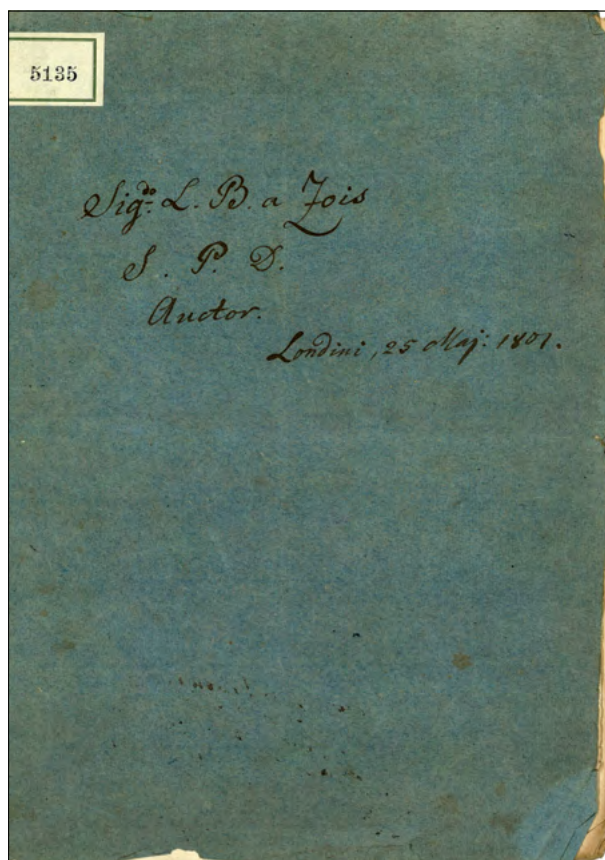 5135
Sig:do L. B. a Zois
S. P. D.
Auctor.
Londini, 25 Maj: 1801.